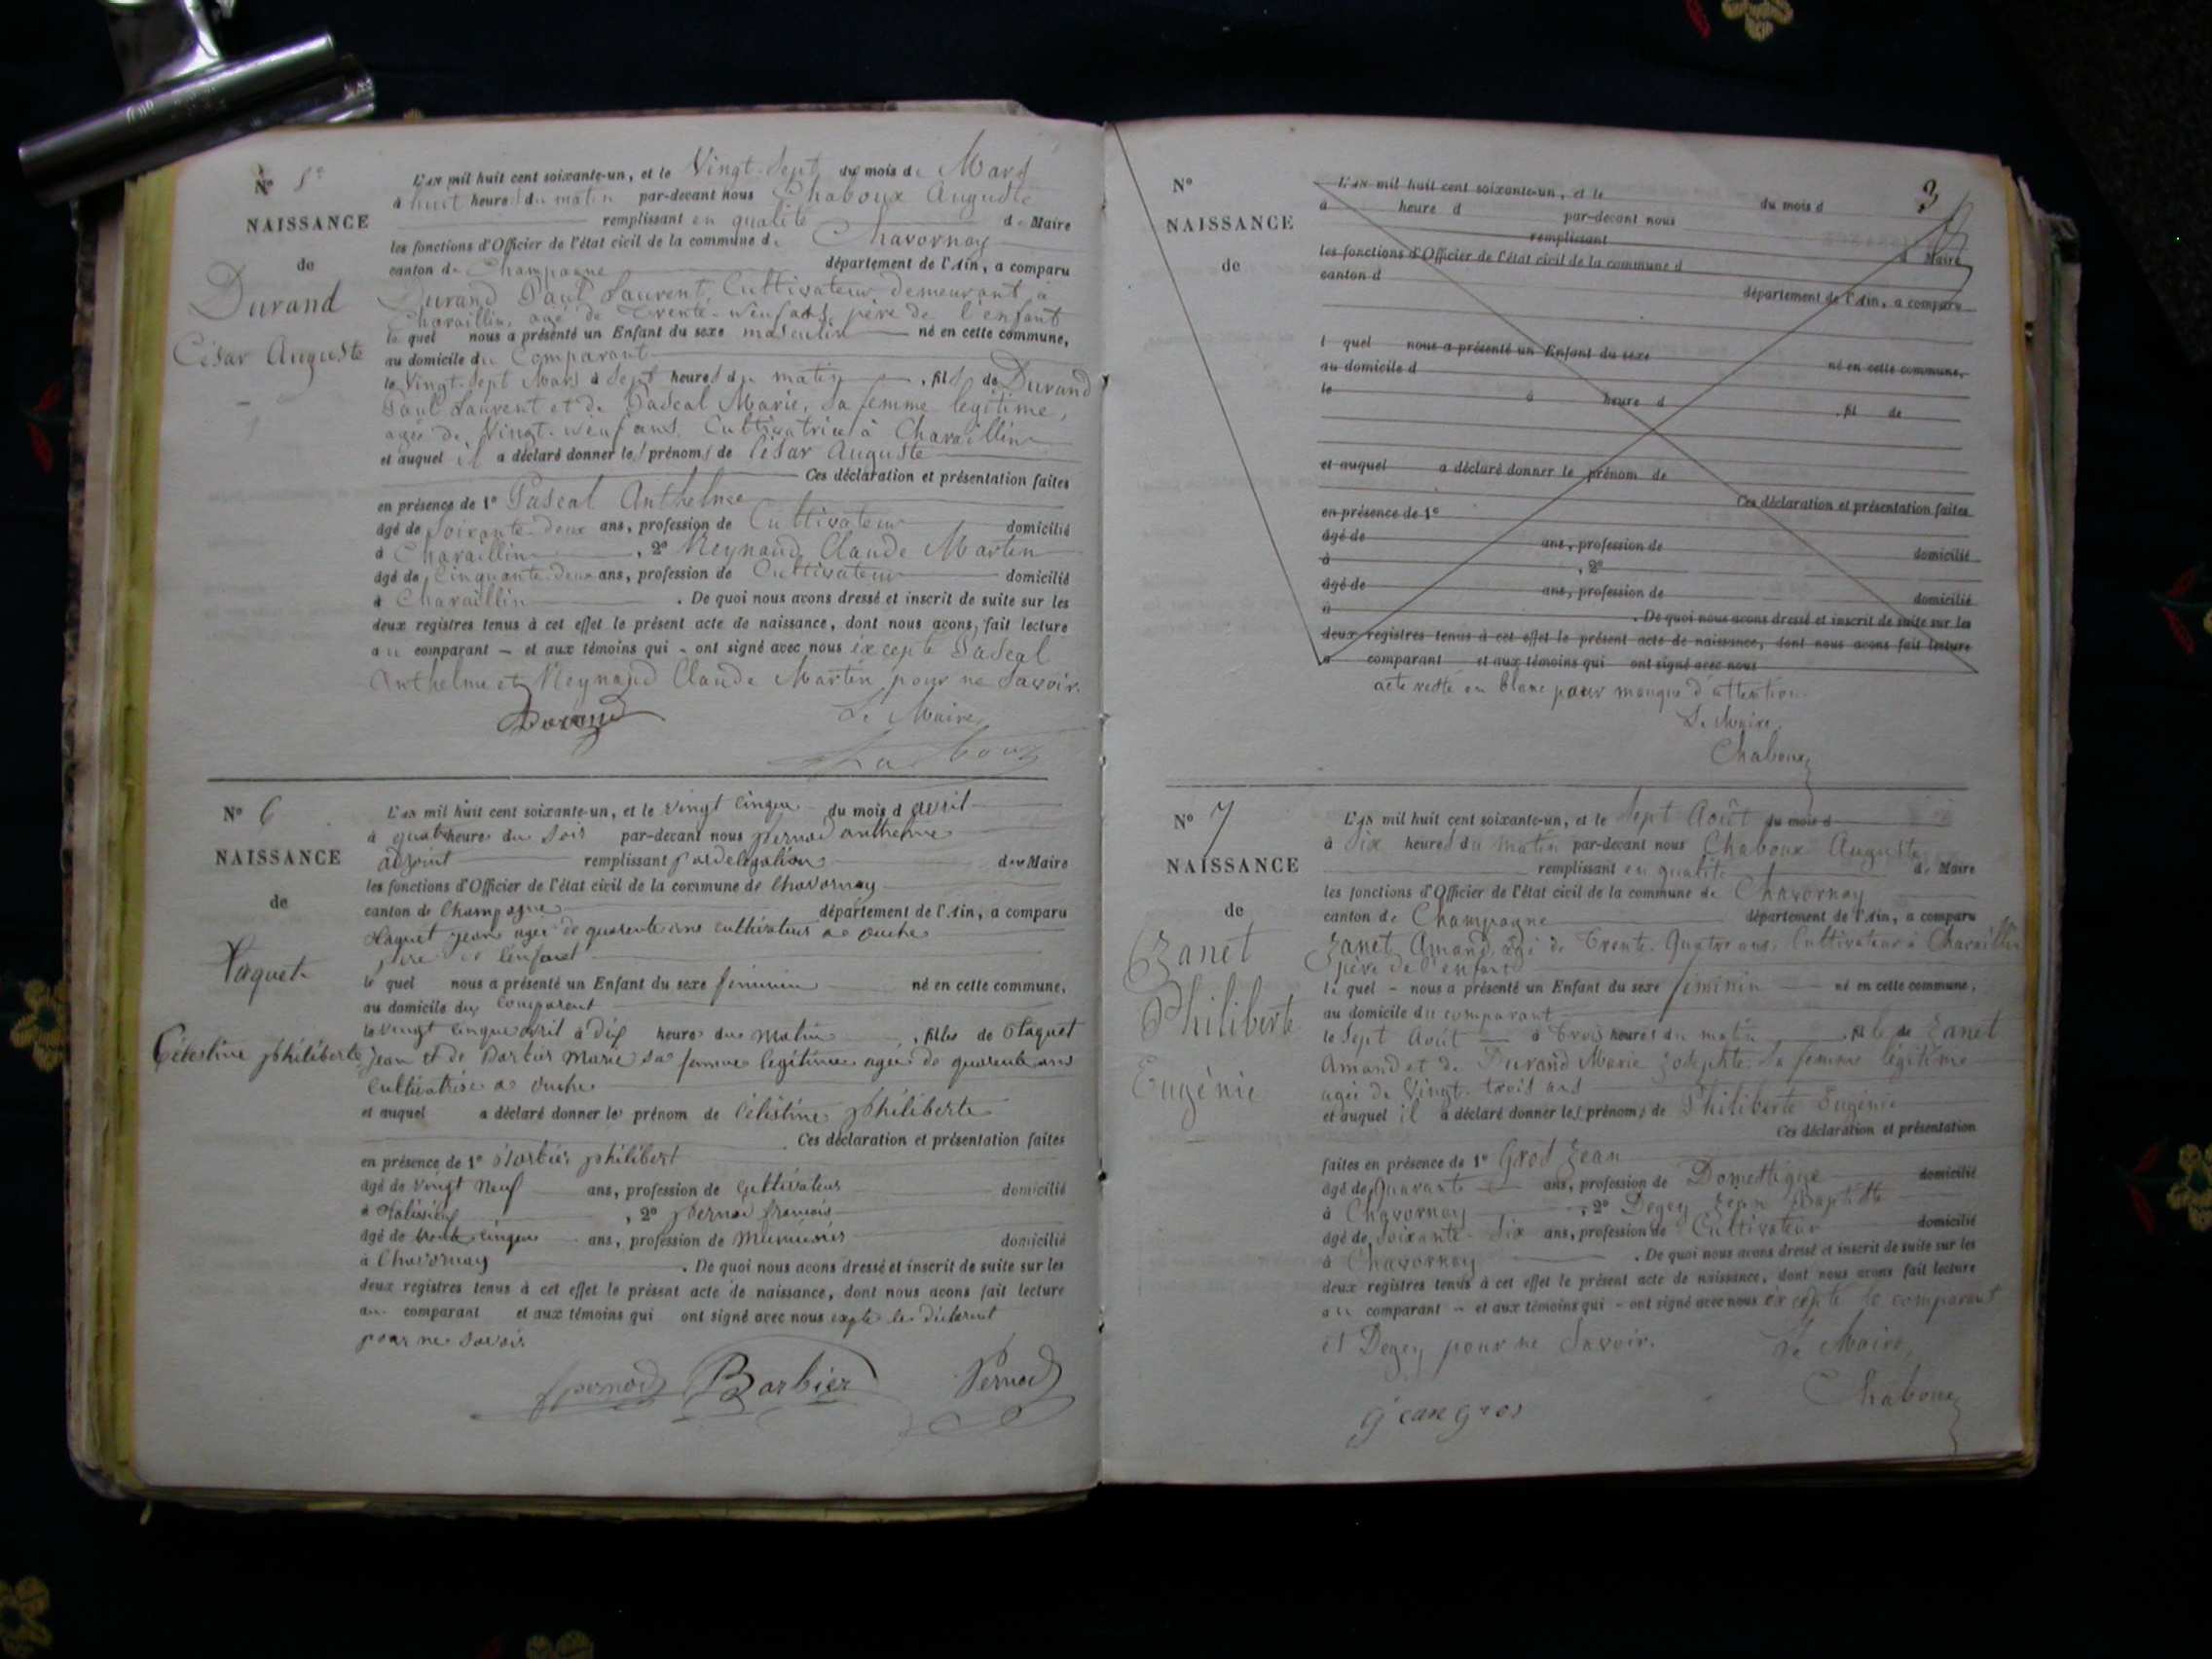 N° 5e
NAISSANCE
de
Durand
César Auguste
L'AN mil huit cent soixante-un, et le Vingt-Sept du mois de Mars
à huit heures du matin par-devant nous Chaboux Auguste
remplissant en qualité de Maire
les fonctions d'Officier de l'état civil de la commune de Chavornay
canton de Champagne département de l'Ain, a comparu
Durand Paul Laurent, Cultivateur demeurant à
Charaillin, agé de Trente-neuf ans, père de l'enfant
le quel nous a présenté un Enfant du sexe masculin né en cette commune,
au domicile du Comparant
le Vingt-Sept Mars à Sept heures du matin, fils de Durand
Paul Laurent et de Pascal Marie, sa femme légitime,
agée de Vingt-neuf ans, Cultivatrice à Charaillin
et auquel il a déclaré donner les prénoms de César Auguste
Ces déclaration et présentation faites
en présence de 1° Pascal Anthelme
âgé de Soixante-deux ans, profession de Cultivateur domicilié
à Charaillin, 2° Reynaud Claude Martin
âgé de Cinquante-deux ans, profession de Cultivateur domicilié
à Charaillin. De quoi nous avons dressé et inscrit de suite sur les
deux registres tenus à cet effet le présent acte de naissance, dont nous avons fait lecture
au comparant – et aux témoins qui – ont signé avec nous excepté Pascal
Anthelme et Reynaud Claude Martin pour ne Savoir.
Durand Le Maire,
Chaboux
N° 6
NAISSANCE
de
Paquet
Célestine philiberte
L'AN mil huit cent soixante-un, et le vingt cinque du mois d avril
à quatre heure du soir par-devant nous pernod anthelme
adjoint remplissant par délégation de Maire
les fonctions d'Officier de l'état civil de la commune de Chavornay
canton de Champagne département de l'Ain, a comparu
Paquet jean agé de quarente ans cultivateur a ouche
père de l'enfant
le quel nous a présenté un Enfant du sexe feminin né en cette commune,
au domicile du comparent
le vingt cinque avril à dix heure du matin, fille de Paquet
Jean et de Barbier Marie sa femme legitime agée de quarente ans
Cultivatrice a ouche
et auquel a déclaré donner le prénom de Célestine philiberte
Ces déclaration et présentation faites
en présence de 1° Barbier philibert
âgé de vingt neuf ans, profession de Cultivateur domicilié
à Talissieu, 2° pernod francois
âgé de trente cinque ans, profession de Meunier domicilié
à Chavornay. De quoi nous avons dressé et inscrit de suite sur les
deux registres tenus à cet effet le présent acte de naissance, dont nous avons fait lecture
au comparant et aux témoins qui ont signé avec nous expté le déclarent
pour ne savoir
pernod Barbier Pernod
3
N°
NAISSANCE
de
L'AN mil huit cent soixante-un, et le du mois d
à heure d par-devant nous
remplissant d Maire
les fonctions d'Officier de l'état civil de la commune d
canton d département de l'Ain, a comparu
l quel nous a présenté un Enfant du sexe né en cette commune,
au domicile d
le à heure d , fil de
et auquel a déclaré donner le prénom de
Ces déclaration et présentation faites
en présence de 1°
âgé de ans, profession de domicilié
à , 2°
âgé de ans, profession de domicilié
à . De quoi nous avons dressé et inscrit de suite sur les
deux registres tenus à cet effet le présent acte de naissance, dont nous avons fait lecture
a comparant et aux témoins qui ont signé avec nous
acte resté en blanc pour manque d'attention.
Le Maire,
Chaboux
N° 7
NAISSANCE
de
Zanet
Philiberte
Eugénie
L'AN mil huit cent soixante-un, et le Sept Août du mois d
à Six heures du matin par-devant nous Chaboux Auguste
remplissant en qualité de Maire
les fonctions d'Officier de l'état civil de la commune de Chavornay
canton de Champagne département de l'Ain, a comparu
Zanet Amand, agé de Trente-Quatre ans, Cultivateur à Charaillin
père de l'enfant
le quel – nous a présenté un Enfant du sexe féminin né en cette commune,
au domicile du comparant
le Sept Août à Trois heures du matin, fille de Zanet
Amand et de Durand Marie Josephte sa femme légitime
agée de Vingt-trois ans
et auquel il a déclaré donner les prénoms de Philiberte Eugénie
Ces déclaration et présentation
faites en présence de 1° Gros Jean
âgé de Quarante ans, profession de Domestique domicilié
à Chavornay, 2° Degey Jean Baptiste
âgé de Soixante-Six ans, profession de Cultivateur domicilié
à Chavornay. De quoi nous avons dressé et inscrit de suite sur les
deux registres tenus à cet effet le présent acte de naissance, dont nous avons fait lecture
au comparant – et aux témoins qui – ont signé avec nous excepté le comparant
et Degey pour ne Savoir. Le Maire,
Jean gros Chaboux